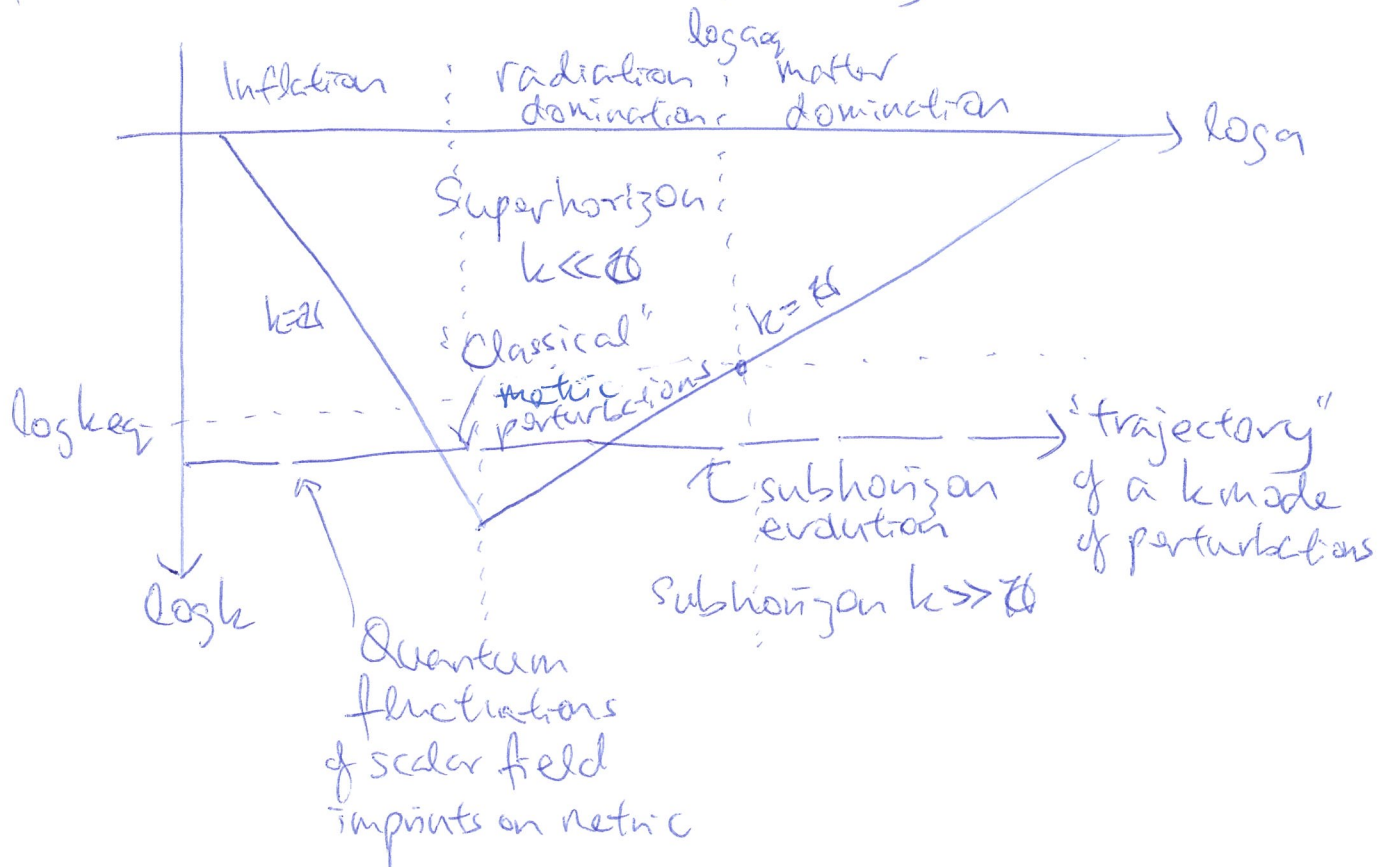 log aeq
Inflation
radiation
domination
matter
domination
log a
Superhorizon
k << ℋ
k=ℋ
k=ℋ
"Classical"
metric
perturbations
log keq
"trajectory"
of a k mode
of perturbations
subhorizon
evolution
Subhorizon k >> ℋ
log k
Quantum
fluctuations
of scalar field
imprints on metric